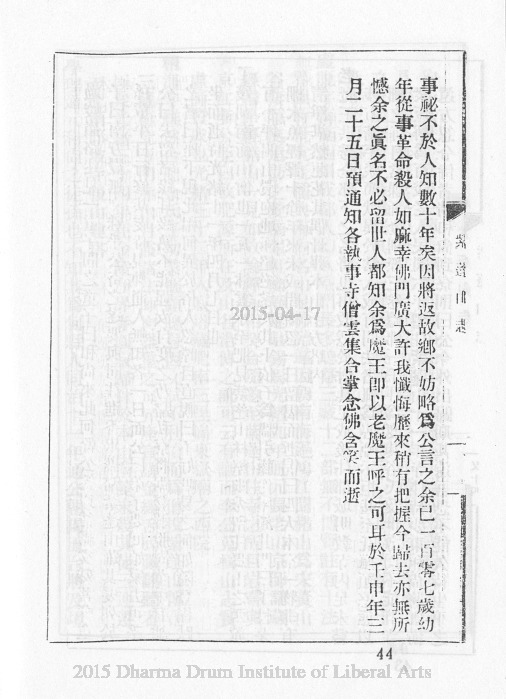 事祕不於人知數十年矣因將返故鄉不妨略爲公言之余已一百零七歲幼
年從事革命殺人如麻幸佛門廣大許我懺悔歷來稍有把握今歸去亦無所
憾余之眞名不必留世人都知余爲魔王卽以老魔王呼之可耳於壬申年三
月二十五日預通知各執事寺僧雲集合掌念佛含笑而逝
44
2015-04-17
2015 Dharma Drum Institute of Liberal Arts